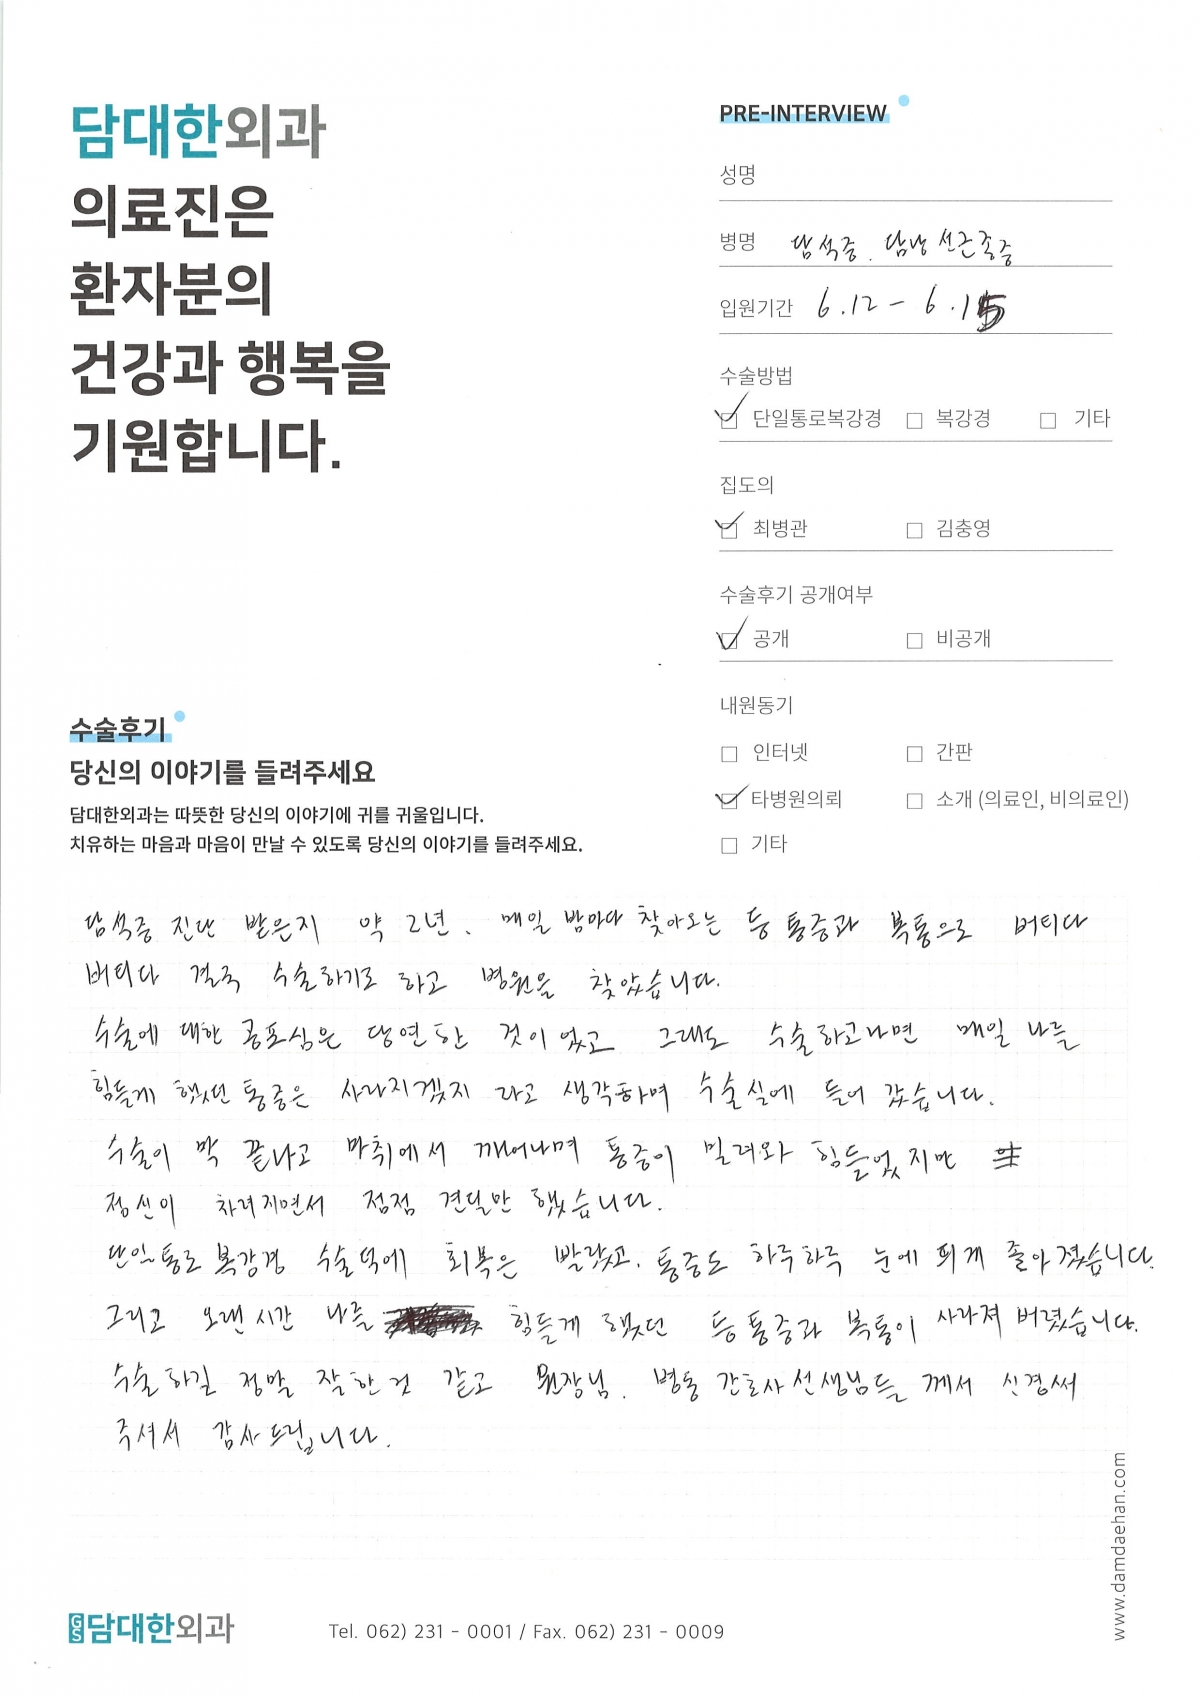 담대한외과
의료진은
환자분의
건강과 행복을
기원합니다.
PRE-INTERVIEW
성명
병명 담석증. 담낭 선근종증
입원기간 6.12 - 6.15
수술방법
단일통로복강경 복강경 기타
집도의
최병관 김충영
수술후기 공개여부
공개 비공개
내원동기
인터넷 간판
타병원의뢰 소개 (의료인, 비의료인)
기타
수술후기
당신의 이야기를 들려주세요
담대한외과는 따뜻한 당신의 이야기에 귀를 귀울입니다.
치유하는 마음과 마음이 만날 수 있도록 당신의 이야기를 들려주세요.
담석증 진단 받은지 약 2년. 매일 밤마다 찾아오는 등 통증과 복통으로 버티다
버티다 결국 수술하기로 하고 병원을 찾았습니다.
수술에 대한 공포심은 당연한 것이었고 그래도 수술하고나면 매일 나를
힘들게 했던 통증은 사라지겠지 라고 생각하며 수술실에 들어 갔습니다.
수술이 막 끝나고 마취에서 깨어나며 통증이 밀려와 힘들었지만
정신이 차려지면서 점점 견딜만 했습니다.
단일통로 복강경 수술덕에 회복은 빨랐고. 통증도 하루하루 눈에 띄게 줄아졌습니다.
그리고 오랜시간 나를 힘들게 했던 등통증과 복통이 사라져 버렸습니다.
수술하길 정말 잘한것 같고 원장님. 병동 간호사선생님들 께서 신경써
주셔서 감사드립니다.
GS담대한외과
Tel. 062) 231 - 0001 / Fax. 062) 231 - 0009
www.damdaehan.com